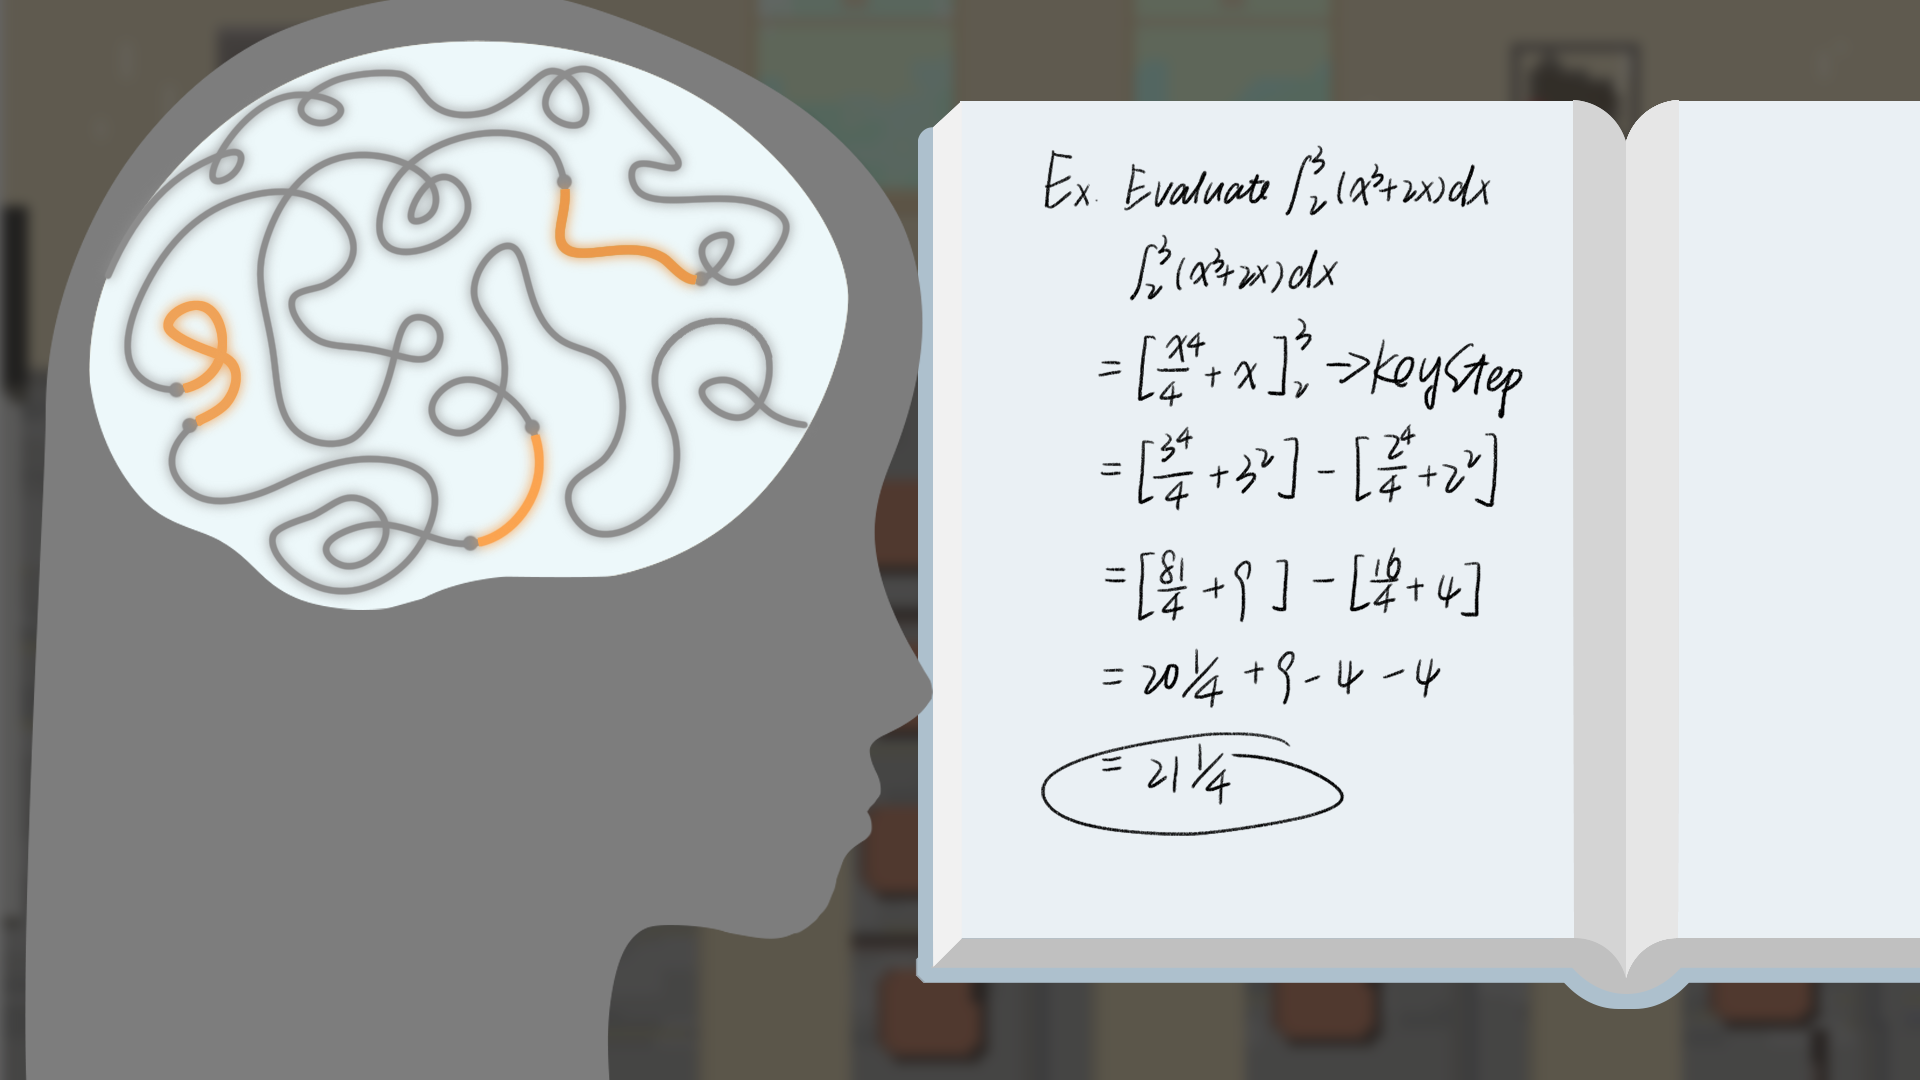 Ex. Evaluate ∫₂³(x³+2x)dx
∫₂³(x³+2x)dx
= [x⁴/4 + x]₂³ → key step
= [3⁴/4 + 3²] - [2⁴/4 + 2²]
= [81/4 + 9] - [16/4 + 4]
= 20 1/4 + 9 - 4 - 4
= 21 1/4